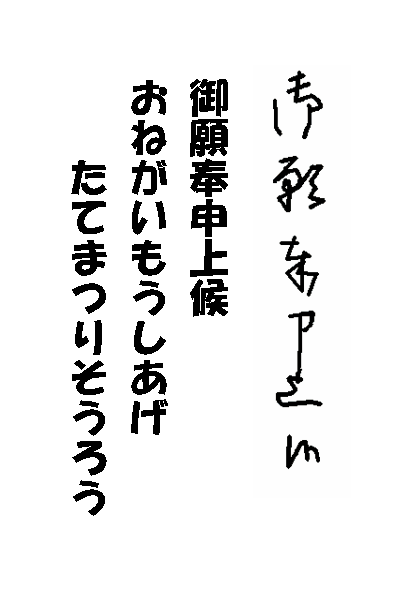 御願奉申上候
御願奉申上候
おねがいもうしあげ
たてまつりそうろう